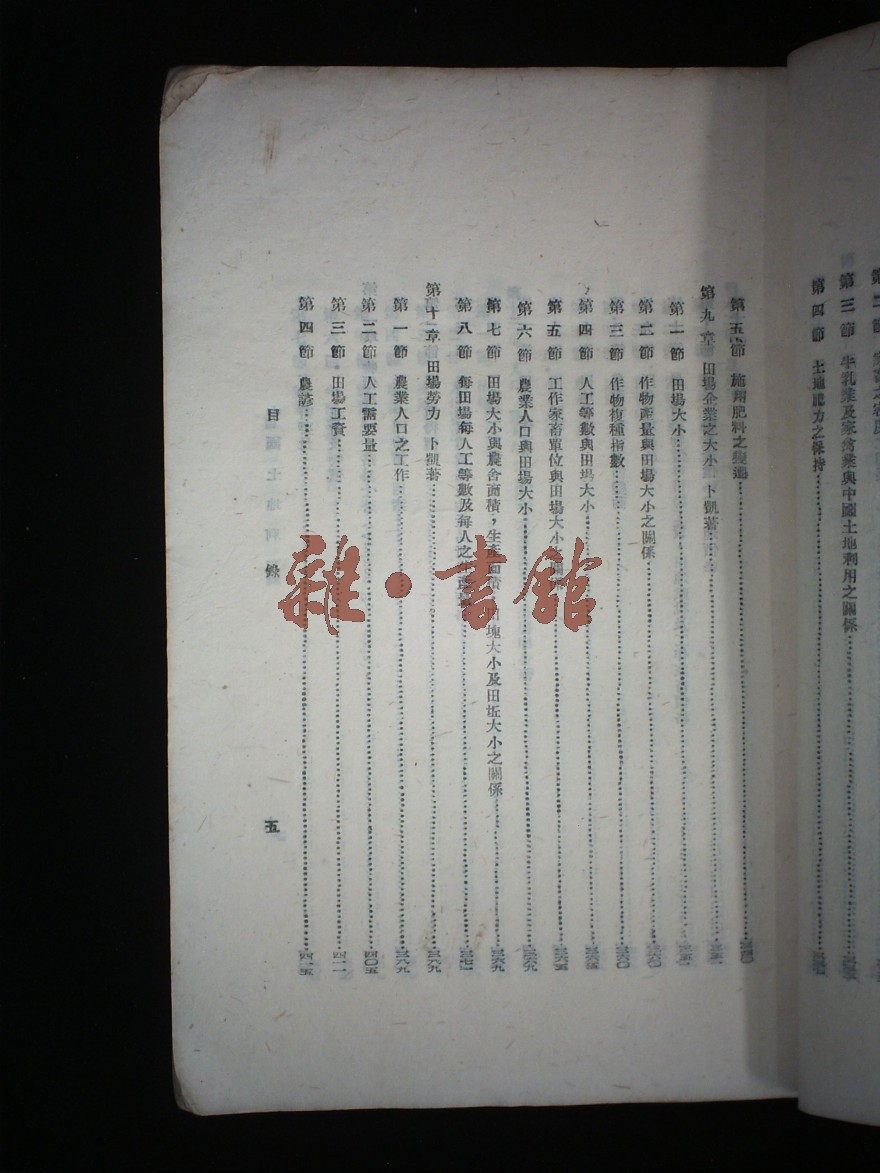 第三節 牛乳業及家禽業與中國土地利用之關係
第四節 土地肥力之保持
第五節 施用肥料之變遷
第九章 田場企業之大小 卜凱著
第一節 田場大小
第二節 作物產量與田場大小之關係 三六〇
第三節 作物複種指數 三六〇
第四節 人工等數與田場大小 三六五
第五節 工作家畜單位與田場大小之 三六五
第六節 農業人口與田場大小 三六九
第七節 田場大小與農舍面積，生產面積 田塊大小及田坵大小之關係 三六九
第八節 每田場每人工等數及每人之 三七一
第十章 田場勞力 卜凱著 三八九
第一節 農業人口之工作 三八九
第二節 人工需要量 四〇五
第三節 田場工資 四一一
第四節 農諺 四一五
目錄 五
雜·書館